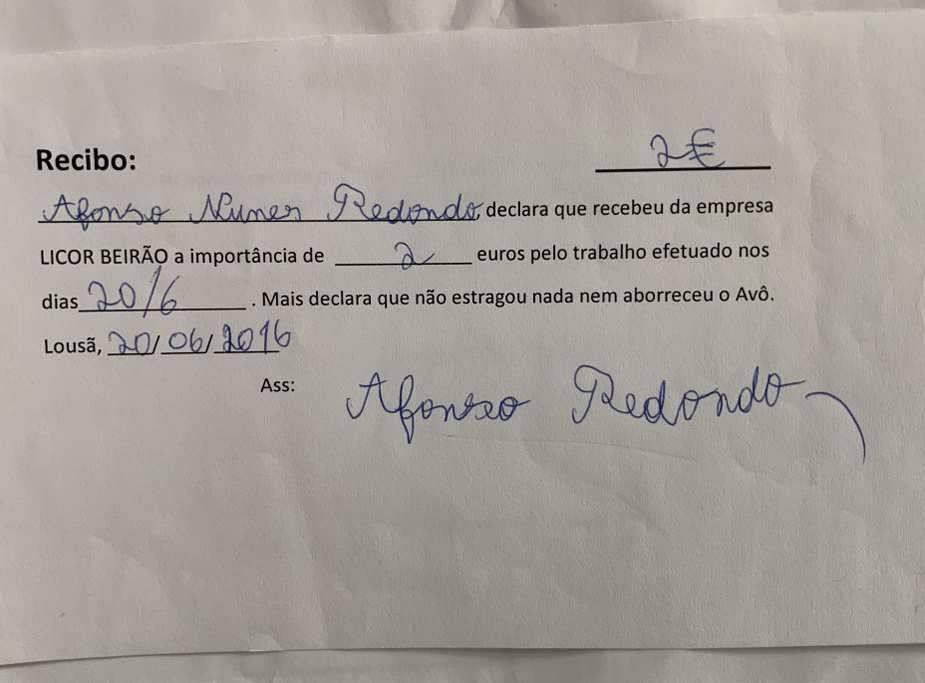 Recibo: 2€
Afonso Nunes Redondo, declara que recebeu da empresa
LICOR BEIRÃO a importância de 2 euros pelo trabalho efetuado nos
dias 20/6. Mais declara que não estragou nada nem aborreceu o Avô.
Lousã, 20/06/2016
Ass: Afonso Redondo